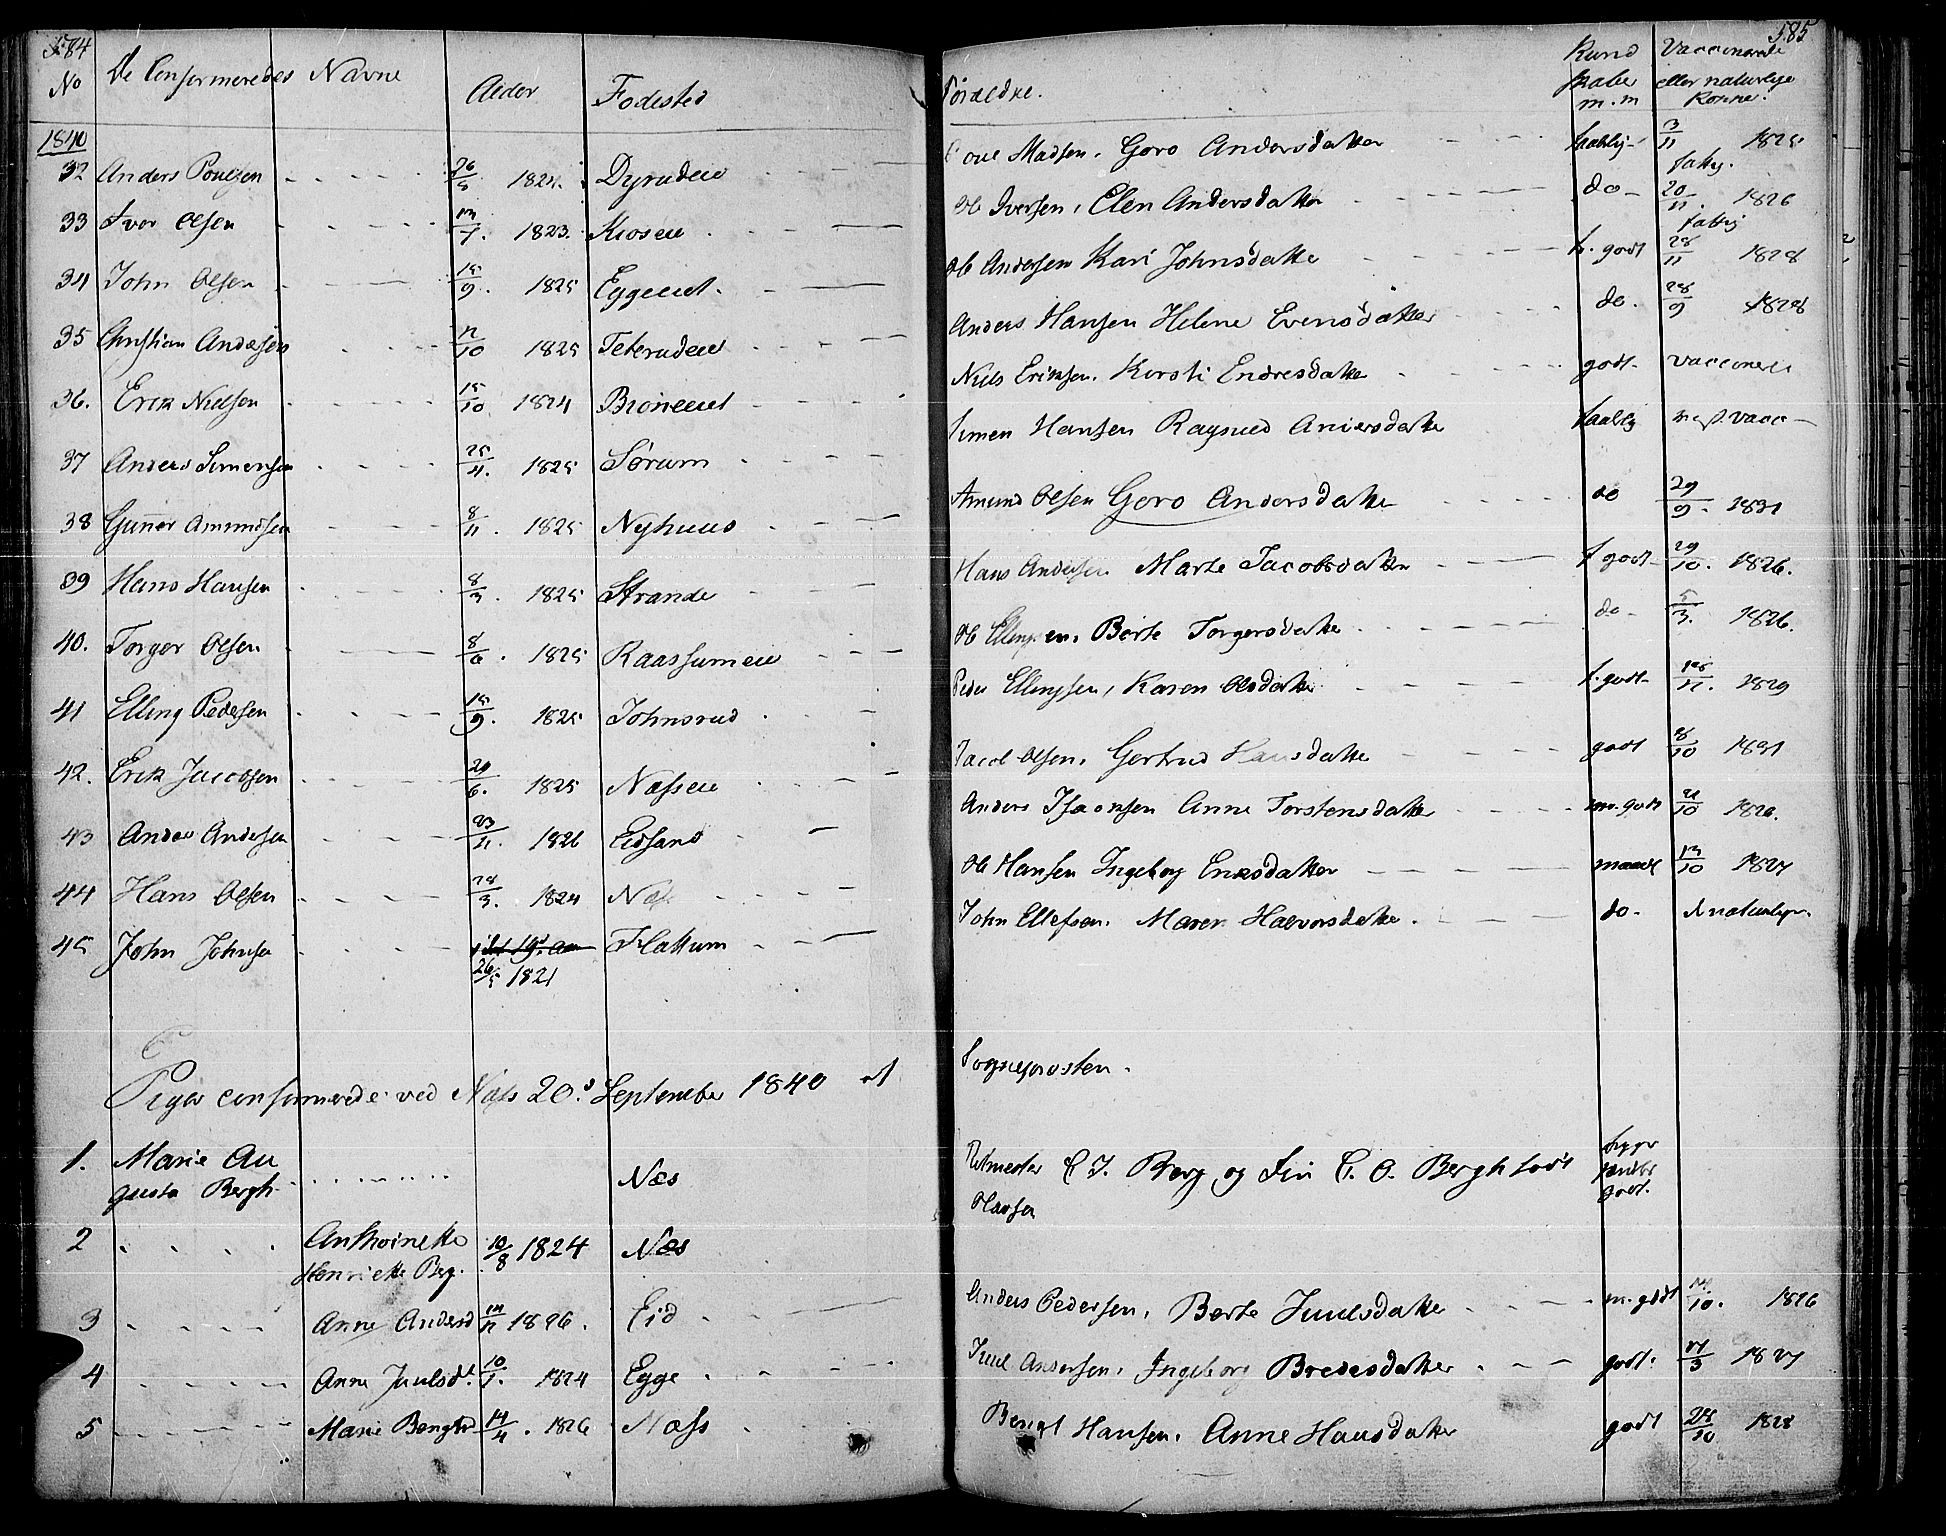 584
No De Confirmeredes Navne Alder Fødested
1840
32 Anders Poulsen 26/5 1825. Dyrudeie
33 Iver Olsen 13/7. 1823. Kioseie
34 John Olsen 15/9. 1825 Eggeeiet.
35 Christian Andersen 12/10 1825 Teterudeie
36. Erik Nielsen 15/10 1824 Brøneeiet
37 Anders Simensen 25/4. 1825 Sørum
38 Gunner Amundsen 8/11. 1825 Nyhuus
39 Hans Hansen 8/3. 1825 Strande
40. Torger Olsen 8/6. 1825 Raassumeie
41 Elling Pedersen 15/9. 1825 Johnsrud
42. Erik Jacobsen 29/6. 1825 Næsseie
43 Anders Andersen 23/11. 1826 Eidsand
44 Hans Olsen 28/3. 1824 Næs
45 John Johnsen Flattum
26/5 1821
Piger confirmerede ved Næs 20d September 1840 af
1. Marie Au
gusta Bergh Næs
2 Anthoinette
Henriette Berg. 10/8 1824 Næs
3 Anne Andersd 14/11 1826. Eid
4 Anne Juulsd. 10/1. 1824 Egge
5 Marie Bengtsd 14/4. 1826 Næss
585
Forældre. Kund Vaccinerede
skaber eller naturlige
m.m Kopper.
Poul Madsen. Goro Andersdatter taalig 3/11 1825
fattig.
Ole Iversen, Elen Andersdatter do 20/11. 1826
fattig
Ole Andersen Kari Johnsdatter t. godt 28/11 1828
Anders Hansen Helene Evensdatter do. 28/9 1828
Niels Eriksen. Kirsti Endresdatter godt. vaccineret
Simen Hansen Ragnild Andersdatter taalig vacc
Amund Olsen Goro Andersdatter do 29/9. 1831
Hans Andersen Marte Jacobsdatter t godt 29/10. 1826.
Ole Ellingsen. Berte Torgersdatter do 5/3. 1826.
Peder Ellingsen, Karen Olsdatter t. godt 15/11. 1829
Jacob Olsen. Gertrud Hansdatter godt 8/10 1831
Anders Isacsen Anne Torstensdatter m. godt 21/10 1826.
Ole Hansen Ingeborg Eriksdatter maadl 13/10 1827
John Ellefsen. Maren Halvorsdatter. do. d. naturlige.
Sogneprosten.
Ritmester C J. Berg og Fru C. O. Bergh født
Hansen
godt.
Anders Pedersen, Berte Juulsdatter m. godt 14/10. 1826
Juul Andersen, Ingeborg Bredesdatter godt. 11/3 1827
Bengt Hansen. Anne Hansdatter godt 28/10 1828